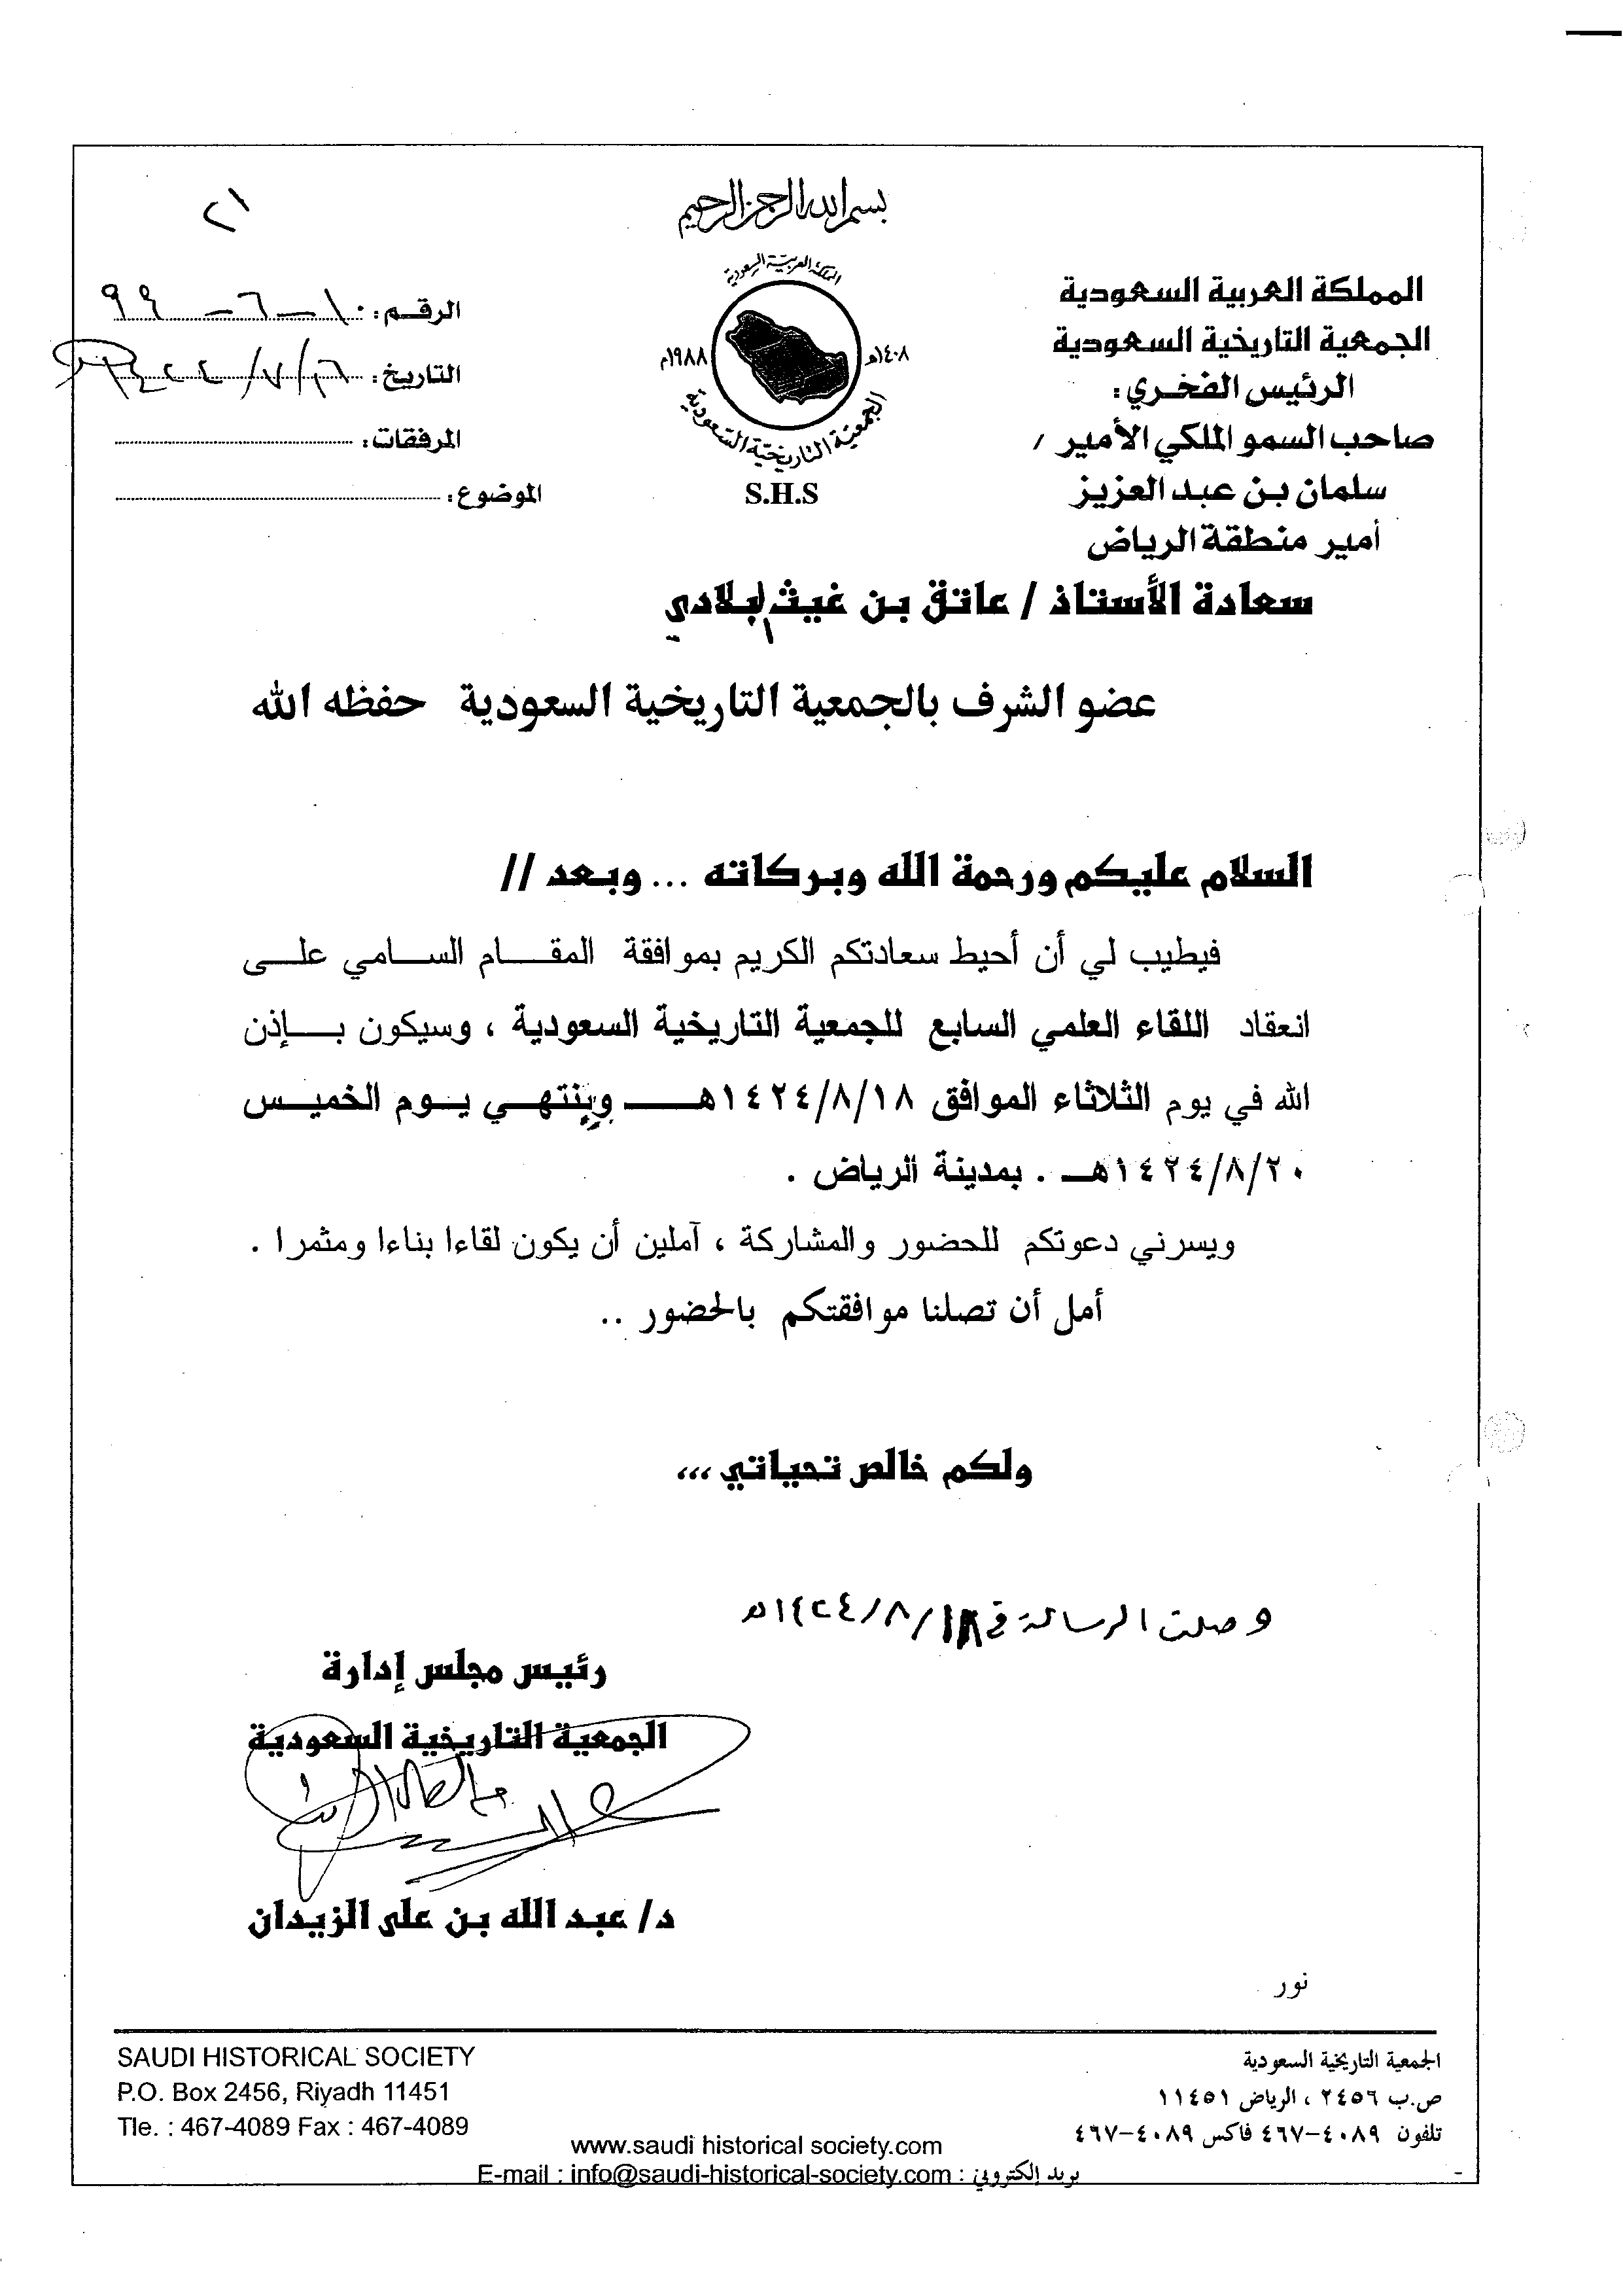 ٢١
بسم الله الرحمن الرحيم
المملكة العربية السعودية
الجمعية التاريخية السعودية
الرئيس الفخري:
صاحب السمو الملكي الأمير /
سلمان بن عبد العزيز
أمير منطقة الرياض
المملكة العربية السعودية
١٤٠٨هـ
١٩٨٨م
الجمعية التاريخية السعودية
S.H.S
الرقم: ١٠-٦-٩٩
التاريخ:
المرفقات:
الموضوع:
سعادة الأستاذ / عاتق بن غيث البلادي
عضو الشرف بالجمعية التاريخية السعودية حفظه الله
السلام عليكم ورحمة الله وبركاته ... وبعد //
فيطيب لي أن أحيط سعادتكم الكريم بموافقة المقـــام الســـامي علـــى
انعقاد اللقاء العلمي السابع للجمعية التاريخية السعودية ، وسيكون بـــإذن
الله في يوم الثلاثاء الموافق ١٤٢٤/٨/١٨هـــ وينتهـي يـوم الخميـس
١٤٢٤/٨/٢٠هـ . بمدينة الرياض .
ويسرني دعوتكم للحضور والمشاركة ، آملين أن يكون لقاءا بناءا ومثمرا .
أمل أن تصلنا موافقتكم بالحضور ..
ولكم خالص تحياتي ,,,
وصلت الرسالة في ١٤٢٤/٨/١٨هـ
رئيس مجلس إدارة
الجمعية التاريخية السعودية
د/ عبد الله بن على الزيدان
نور
SAUDI HISTORICAL SOCIETY
P.O. Box 2456, Riyadh 11451
Tle. : 467-4089 Fax : 467-4089
الجمعية التاريخية السعودية
ص.ب ٢٤٥٦ ، الرياض ١١٤٥١
تلفون ٤٠٨٩-٤٦٧ فاكس ٤٠٨٩-٤٦٧
www.saudi historical society.com
E-mail : info@saudi-historical-society.com : بريد إلكتروني